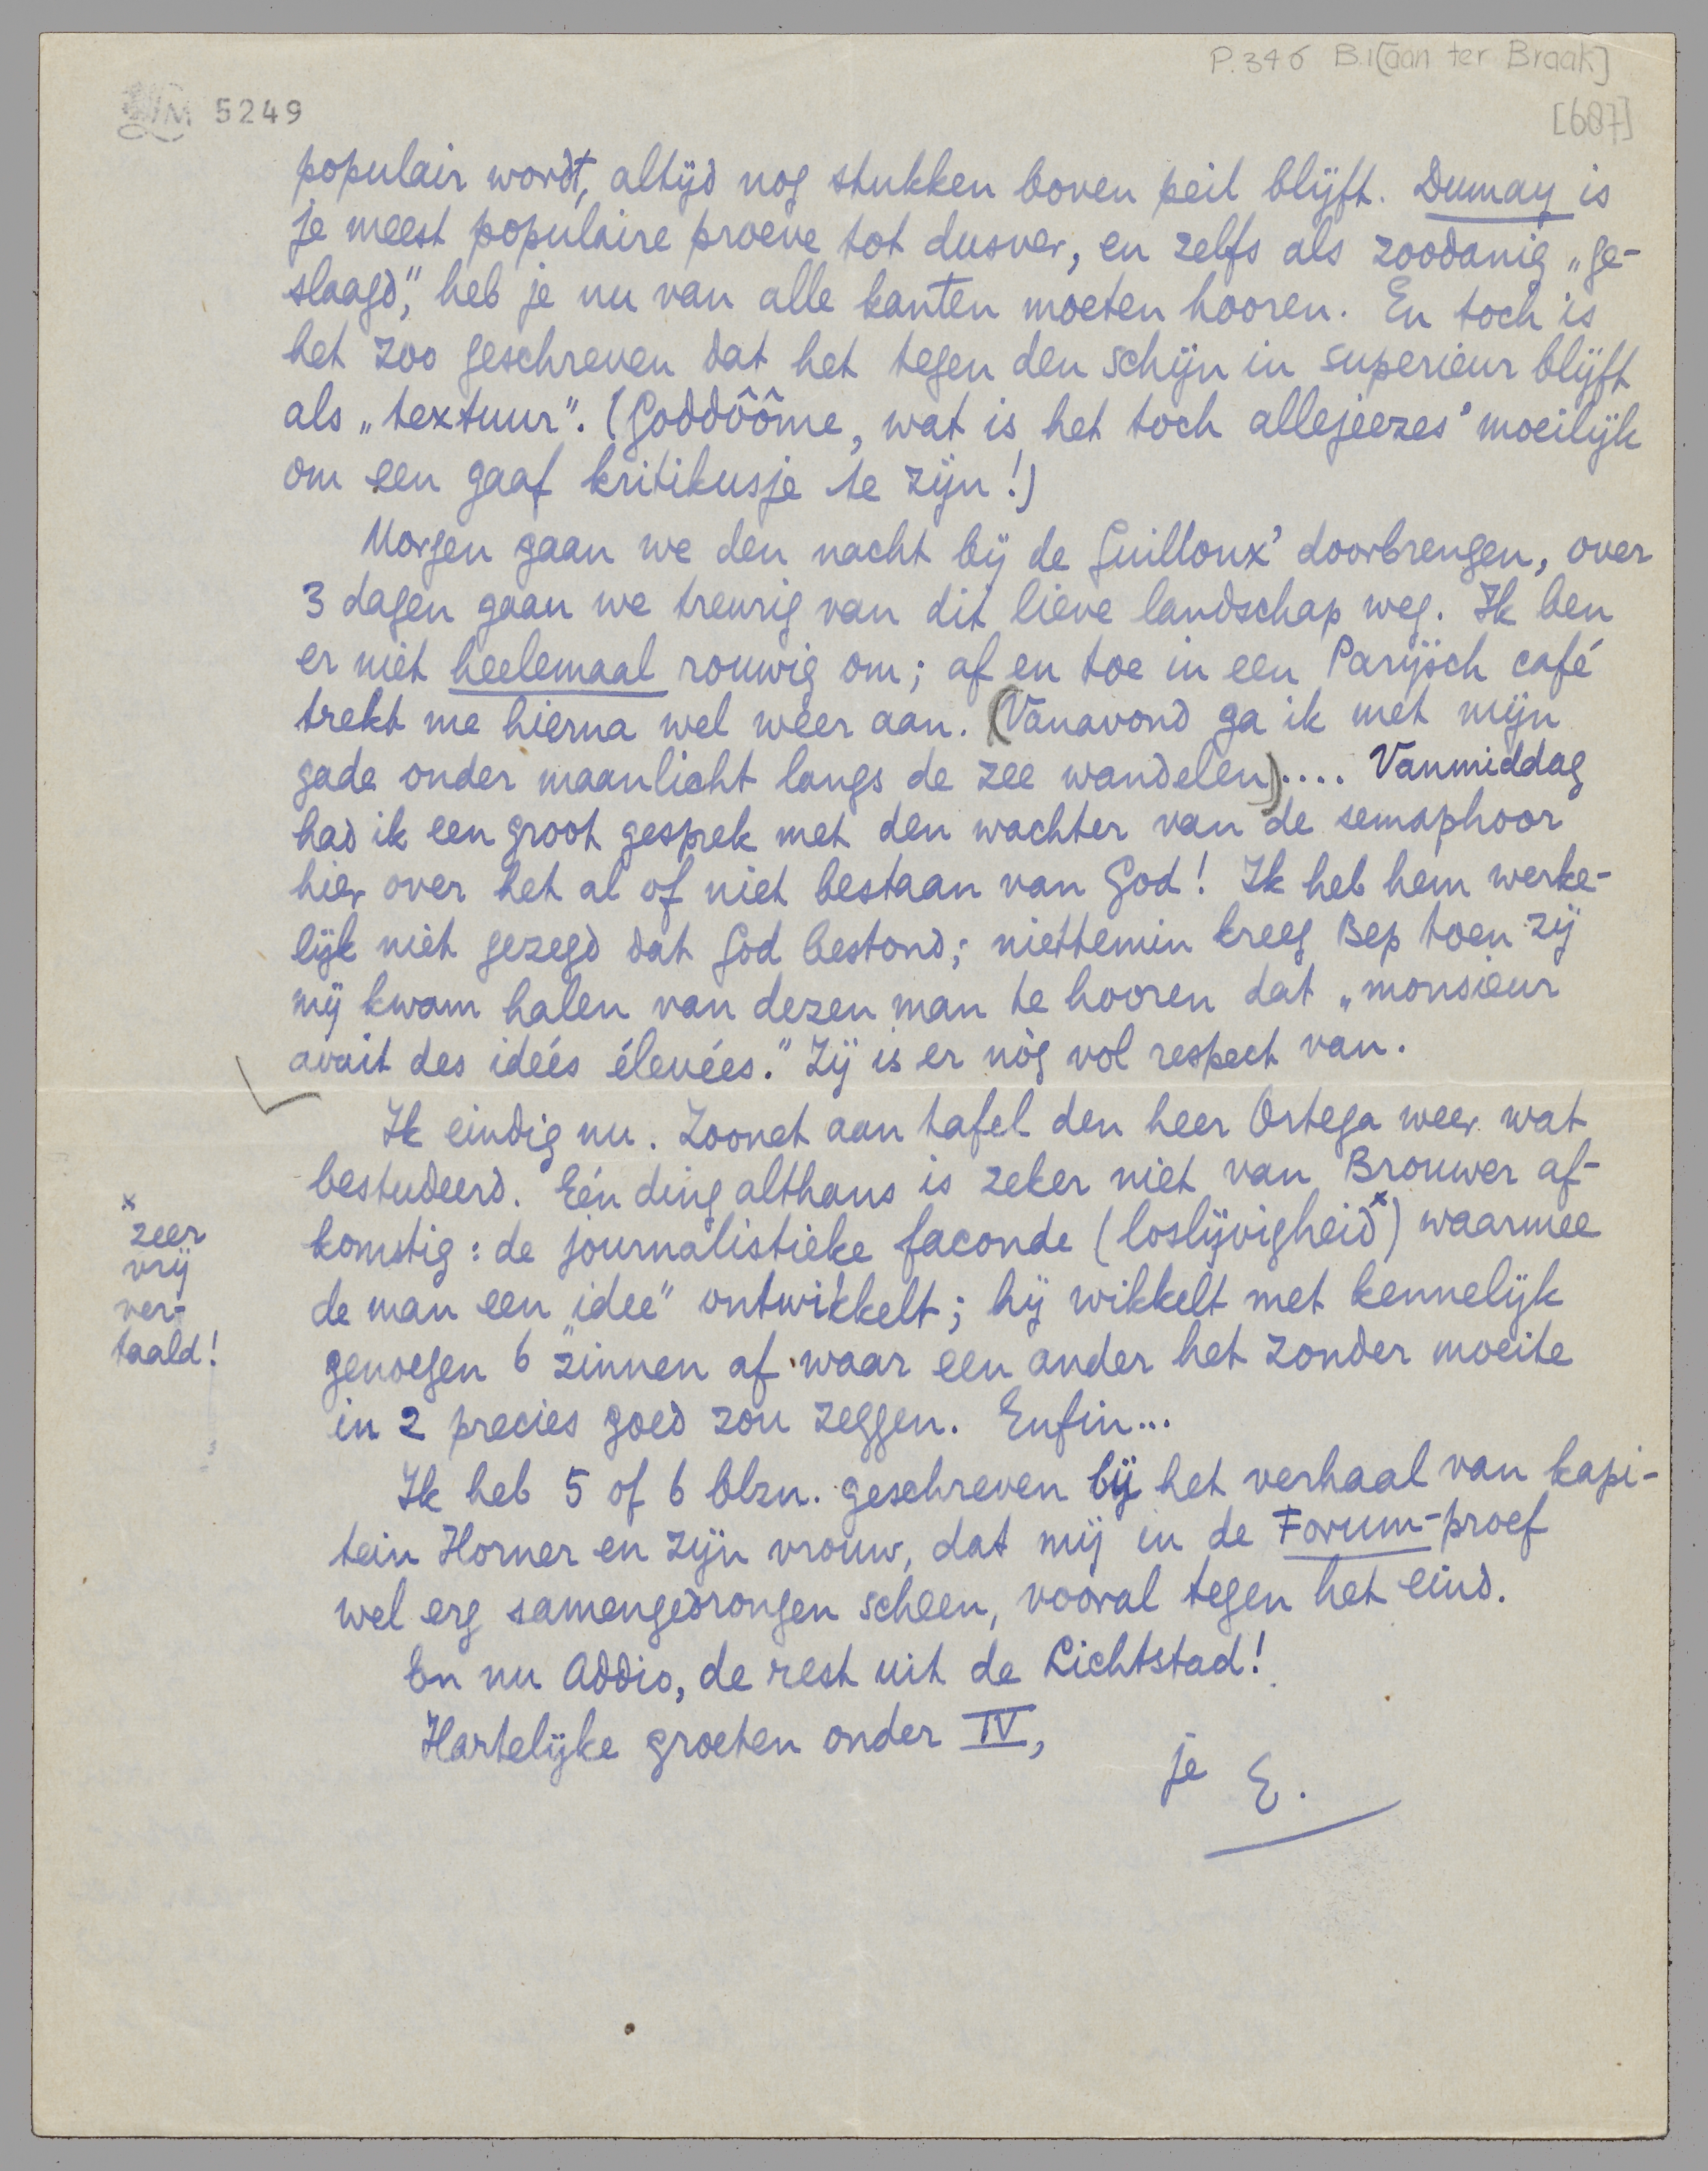 P.346 B.I [aan ter Braak]
LM 5249
[687]
populair wordt, altijd nog stukken boven peil blijft. Dumay is
je meest populaire proeve tot dusver, en zelfs als zoodanig „ge-
slaagd”, heb je nu van alle kanten moeten hooren. En toch is
het zoo geschreven dat het tegen den schijn in superieur blijft
als „textuur”. (Goddôôme, wat is het toch allejeezes' moeilijk
om een gaaf kritikusje te zijn!)
Morgen gaan we den nacht bij de Guilloux' doorbrengen, over
3 dagen gaan we treurig van dit lieve landschap weg. Ik ben
er niet heelemaal rouwig om; af en toe in een Parijsch café
trekt me hierna wel weer aan. (Vanavond ga ik met mijn
gade onder maanlicht langs de zee wandelen).... Vanmiddag
had ik een groot gesprek met den wachter van de semaphoor
hier over het al of niet bestaan van God! Ik heb hem werke-
lijk niet gezegd dat God bestond; niettemin kreeg Bep toen zij
mij kwam halen van dezen man te hooren dat „monsieur
avait des idées élevées.” Zij is er nòg vol respect van.
Ik eindig nu. Zoonet aan tafel den heer Ortega weer wat
bestudeerd. Eén ding althans is zeker niet van Brouwer af-
komstig: de journalistieke faconde (loslijvigheid x) waarmee
de man een „idee” ontwikkelt; hij wikkelt met kennelijk
genoegen 6 zinnen af waar een ander het zonder moeite
in 2 precies goed zou zeggen. Enfin...
x
zeer
vrij
ver-
taald!
Ik heb 5 of 6 blzn. geschreven bij het verhaal van kapi-
tein Horner en zijn vrouw, dat mij in de Forum-proef
wel erg samengedrongen scheen, vooral tegen het eind.
En nu Addio, de rest uit de Lichtstad!
Hartelijke groeten onder IV,
je E.